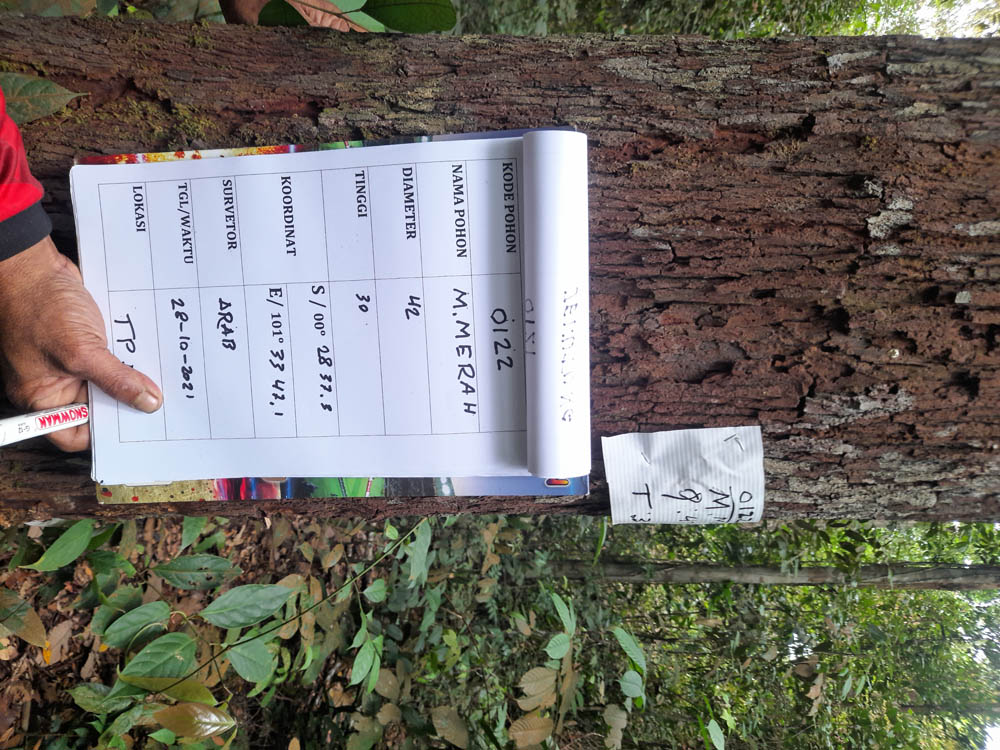 0122
M
T:3
0121
KODE POHON 0122
NAMA POHON M.MERAH
DIAMETER 42
TINGGI 30
KOORDINAT
S / 00° 28 37.3
E/ 101° 33 47.1
SURVETOR ARAB
TGL/WAKTU 28-10-2021
LOKASI TP.
SNOWMAN